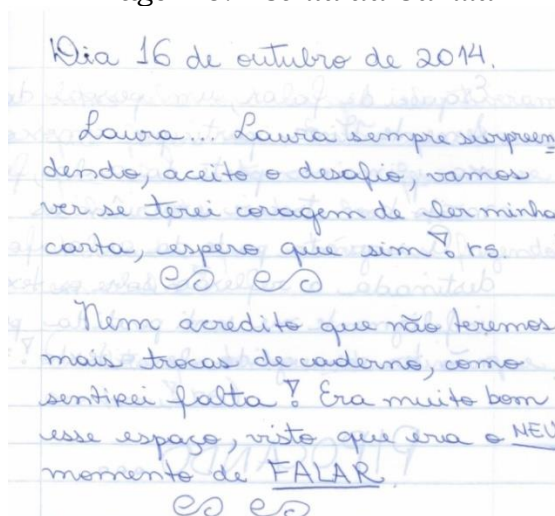 Dia 16 de outubro de 2014.
Laura... Laura sempre surpreen
dendo, aceito o desafio, vamos
ver se terei coragem de ler minha
carta, espero que sim! rs.
Nem acredito que não teremos
mais trocas de caderno, como
sentirei falta! Era muito bom
esse espaço, visto que era o MEU
momento de FALAR.